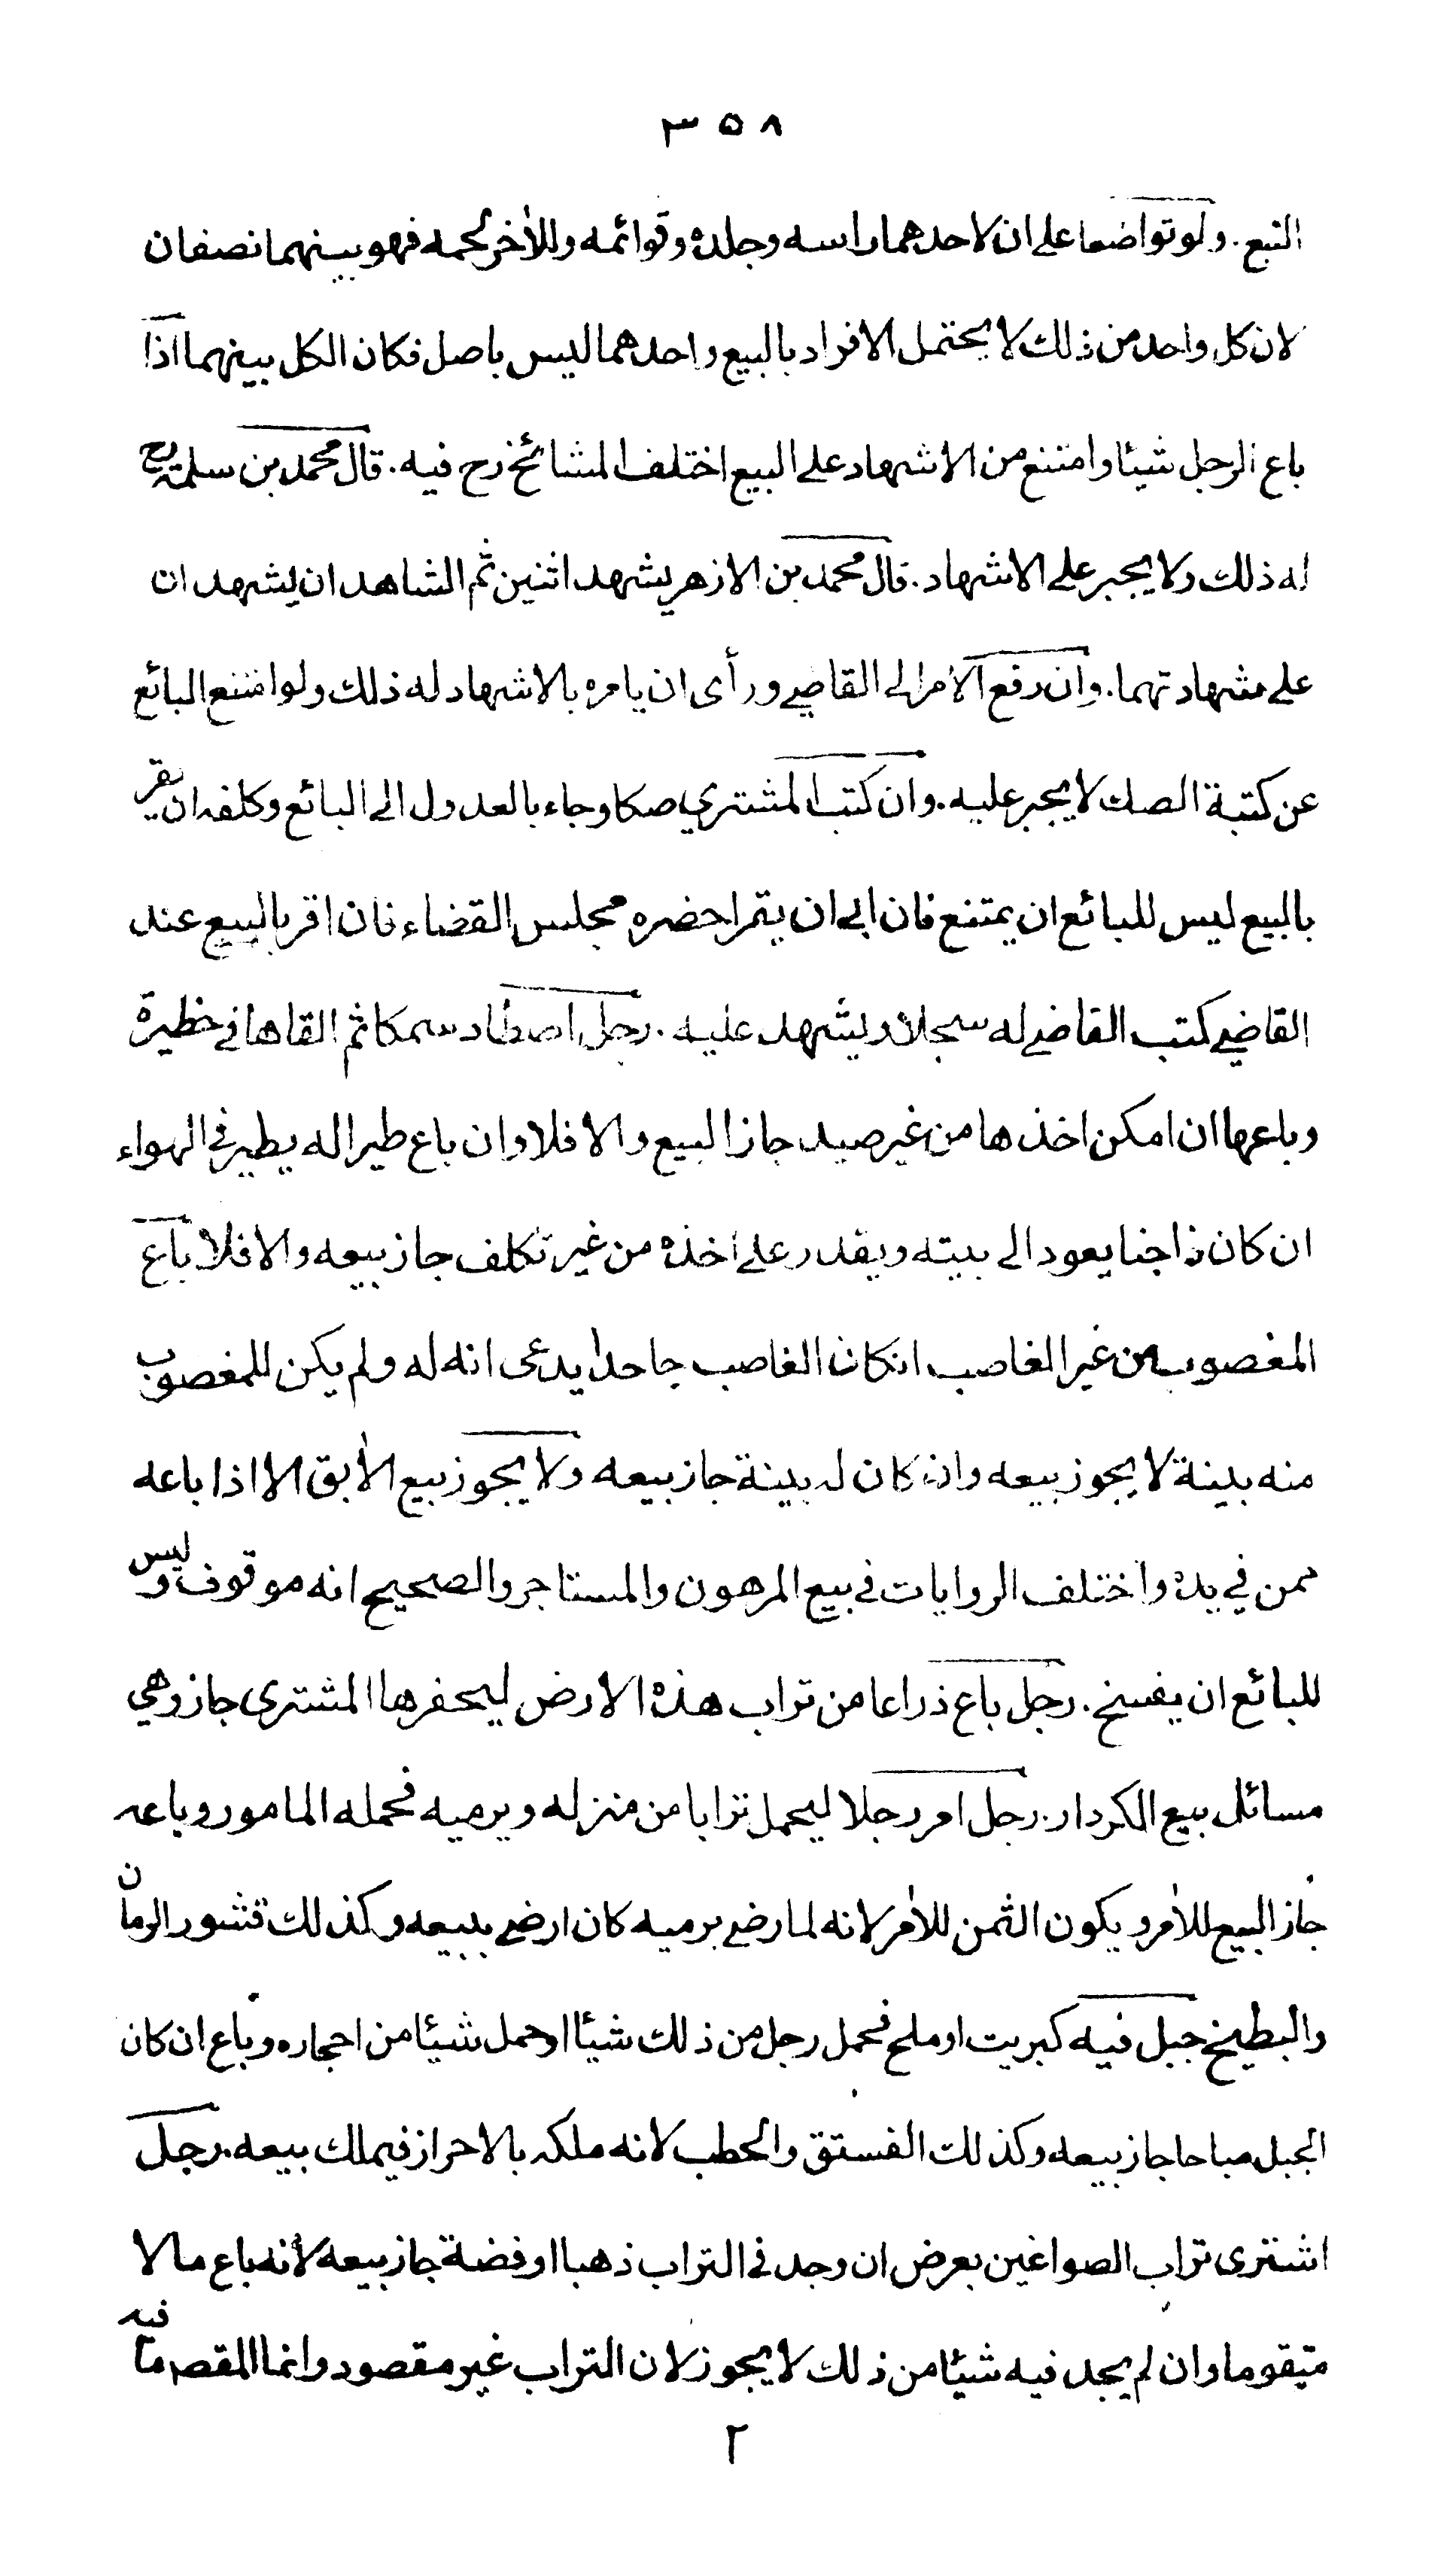 ٣٥٨
التبع. ولو تواضعا على ان لاحدهما راسه وجلده وقوائمه وللاٰخر لحمه فهو بينهما نصفان
لان كل واحد من ذلك لا يحتمل الافراد بالبيع واحدهما ليس باصل فكان الكل بينهما اذا
باع الرجل شيئا وامتنع من الاشهاد على البيع اختلف المشائخ رح فيه. قال محمد بن سلمة رح
له ذلك ولا يجبر على الاشهاد. قال محمد بن الازهر يشهد اثنين ثم الشاهدان يشهدان
على شهادتهما. وان رفع الامر الى القاضي ورأى ان يامره بالاشهاد له ذلك ولو امتنع البائع
عن كتبة الصك لا يجبر عليه. وان كتب المشتري صكا وجاء بالعدول الى البائع وكلفه ان يقر
بالبيع ليس للبائع ان يمتنع فان ابى ان يقر احضره مجلس القضاء فان اقر بالبيع عند
القاضي كتب القاضي له سجلا ويشهد عليه. رجل اصطاد سمكا ثم القاها في حظيرة
وباعها ان امكن اخذها من غير صيد جاز البيع والا فلا وان باع طيرا له يطير في الهواء
ان كان ذاجنا يعود الى بيته ويقدر على اخذه من غير تكلف جاز بيعه والا فلا باع
المغصوب من غير الغاصب انكان الغاصب جاحدا يدعى انه له ولم يكن للمغصوب
منه بينة لا يجوز بيعه وان كان له بينة جاز بيعه ولا يجوز بيع الاٰبق الا اذا باعه
ممن في يده واختلف الروايات في بيع المرهون والمستاجر والصحيح انه موقوف وليس
للبائع ان يفسخ. رجل باع ذراعا من تراب هذه الارض ليحفرها المشترى جاز وهي
مسائل بيع الكردار. رجل امر رجلا ليحمل ترابا من منزله ويرميه فحمله المامور وباعه
جاز البيع للاٰمر ويكون الثمن للاٰمر لانه لما رضي برميه كان ارضي ببيعه وكذلك قشور الرمان
والبطيخ جبل فيه كبريت او ملح فحمل رجل من ذلك شيئا او حمل شيئا من احجاره وباع ان كان
الجبل مباحا جاز بيعه وكذلك الفستق والحطب لانه ملكه بالاحراز فيملك بيعه. رجل
اشترى تراب الصواغين بعرض ان وجد في التراب ذهبا او فضة جاز بيعه لأنه باع مالا
متقوما وان لم يجد فيه شيئا من ذلك لا يجوز لان التراب غير مقصود وانما المقصد ما فيه
٢